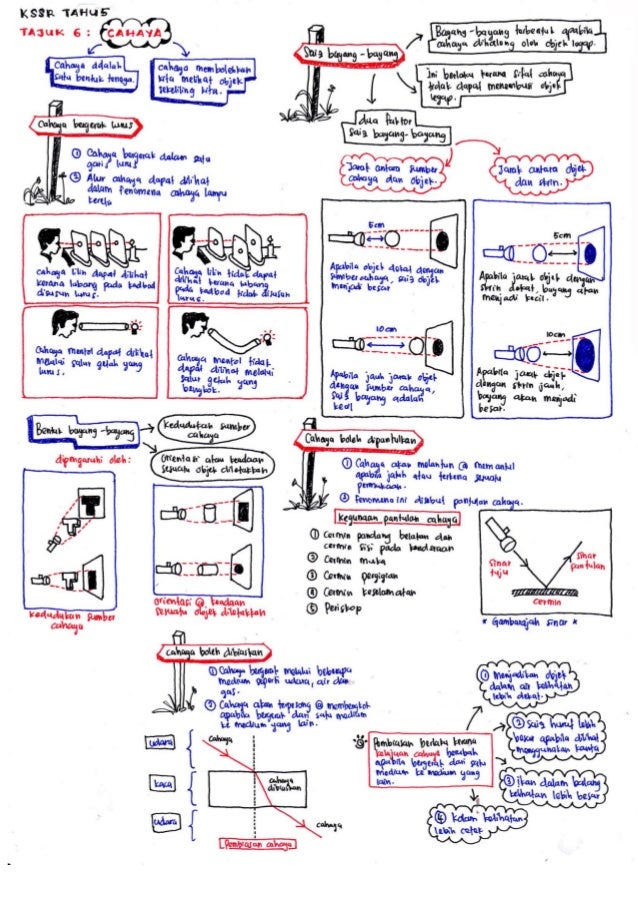 KSSR TAHUN 5
TAJUK 6 : CAHAYA
Cahaya adalah
satu bentuk tenaga.
Cahaya membolehkan
kita melihat objek
sekeliling kita.
Saiz bayang-bayang
Bayang-bayang terbentuk apabila
cahaya dihalang oleh objek legap.
Ini berlaku kerana sifat cahaya
tidak dapat menembusi objek
legap.
dua faktor
saiz bayang-bayang
Jarak antara sumber
cahaya dan objek.
Jarak antara objek
dan skrin.
Cahaya bergerak lurus
① Cahaya bergerak dalam satu
garis lurus
② Alur cahaya dapat dilihat
dalam fenomena cahaya lampu
kereta
Cahaya lilin dapat dilihat
kerana lubang pada kadbod
disusun lurus.
Cahaya lilin tidak dapat
dilihat kerana lubang
pada kadbod tidak disusun
lurus.
Cahaya mentol dapat dilihat
melalui salur getah yang
lurus.
Cahaya mentol tidak
dapat dilihat melalui
salur getah yang
bengkok.
5cm
Apabila objek dekat dengan
sumber cahaya, saiz objek
menjadi besar
10cm
Apabila jauh jarak objek
dengan sumber cahaya,
saiz bayang adalah
kecil
5cm
Apabila jarak objek dengan
skrin dekat, bayang akan
menjadi kecil.
10cm
Apabila jarak objek
dengan skrin jauh,
bayang akan menjadi
besar.
Bentuk bayang-bayang
dipengaruhi oleh:
Kedudukan sumber
cahaya
Orientasi atau keadaan
sesuatu objek diletakkan
Kedudukan sumber
cahaya
Orientasi @ keadaan
sesuatu objek diletakkan
Cahaya boleh dipantulkan
① Cahaya akan melantun @ memantul
apabila jatuh atau terkena sesuatu
permukaan.
② Fenomena ini disebut pantulan cahaya.
Kegunaan pantulan cahaya
① Cermin pandang belakang dan
cermin sisi pada kenderaan
② Cermin muka
③ Cermin pergigian
④ Cermin keselamatan
⑤ Periskop
sinar
tuju
sinar
pantulan
cermin
* Gambarajah sinar *
Cahaya boleh dibiaskan
① Cahaya bergerak melalui beberapa
medium seperti udara, air dan
gas.
② Cahaya akan terpesong @ membengkok
apabila bergerak dari satu medium
ke medium yang lain.
udara
kaca
udara
cahaya
cahaya
dibiaskan
cahaya
Pembiasan cahaya
Pembiasan berlaku kerana
kelajuan cahaya berubah
apabila bergerak dari satu
medium ke medium yang
lain.
① Menjadikan objek
dalam air kelihatan
lebih dekat.
② Saiz huruf lebih
besar apabila dilihat
menggunakan kanta
③ ikan dalam balang
kelihatan lebih besar
④ Kolam kelihatan
lebih cetek